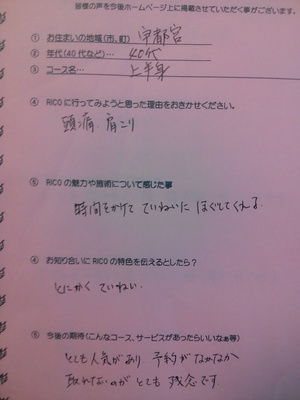 皆様の声を今後ホームページ上に掲載させていただく事がございます。
① お住まいの地域(市、町) 宇都宮
② 年代(40代など)… 40代
③ コース名… 上半身
④ RICOに行ってみようと思った理由をおきかせください。
頭痛、肩こり
⑤ RICOの魅力や施術について感じた事
時間をかけて ていねいに ほぐしてくれる。
④ お知り合いにRICOの特色を伝えるとしたら?
とにかく ていねい。
⑥ 今後の期待(こんなコース、サービスがあったらいいなぁ等)
とても人気があり 予約がなかなか
取れないのが とても 残念です。